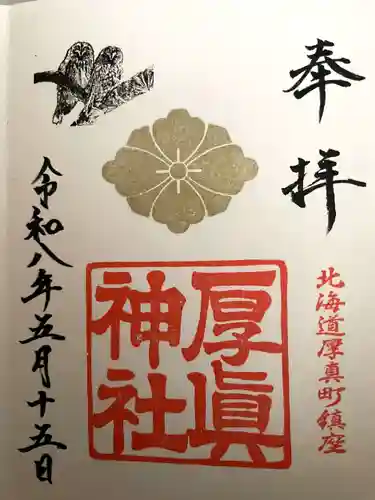 奉拝
北海道厚真町鎮座
厚眞
神社
令和八年五月十五日